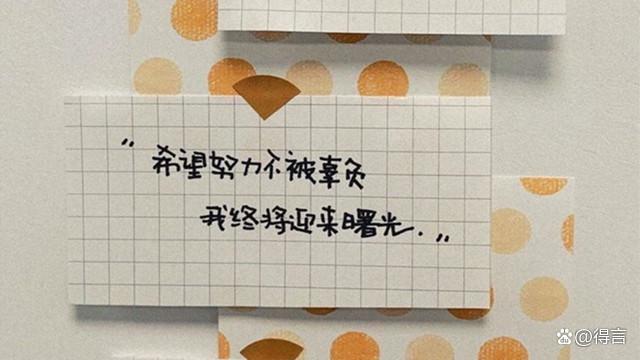 “希望努力不被辜负
我终将迎来曙光.”
@得言